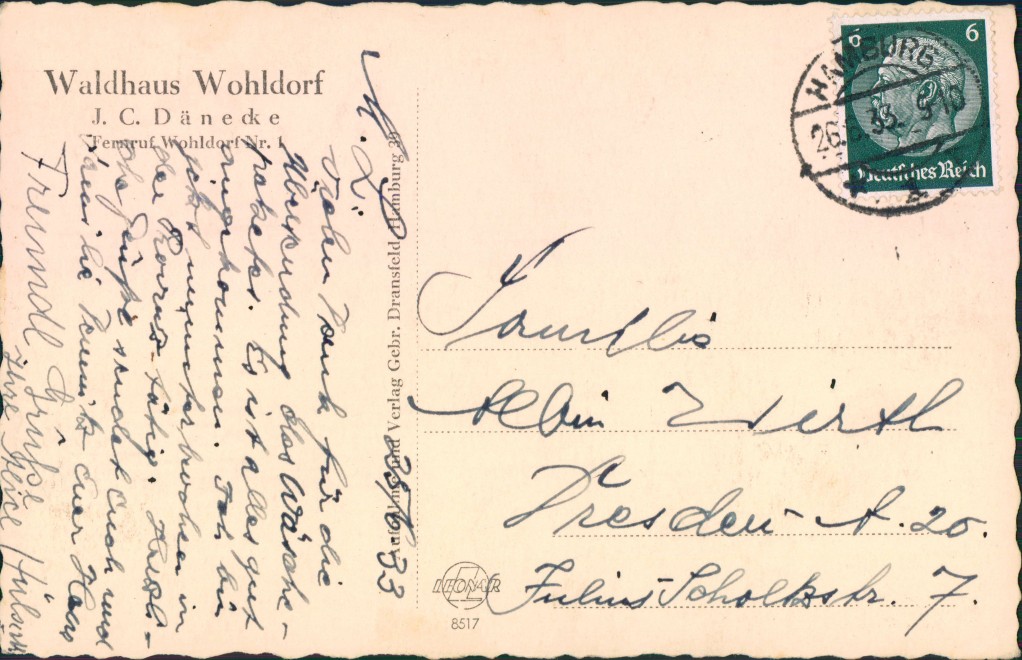 Waldhaus Wohldorf
J. C. Dänecke
Fernruf Wohldorf Nr. 1
M. L.
Vielen Dank für die
Übersendung des Wäsche-
paketes. Es ist alles gut
angekommen. Ich bin
jetzt ununterbrochen in
der Provinz tätig. Herzl-
iche Grüße sendet Euch und
Euer Hans
Freundl. Grüße
Ihre Alice
25/6 33
Aufnahme und Verlag Gebr. Dransfeld, Hamburg 3
LEONAR
8517
HAMBURG
26. 33. 9-10
6 6
Deutsches Reich
Familie
Albin Wirth
Dresden-A. 20.
Julius-Scholtzstr. 7.